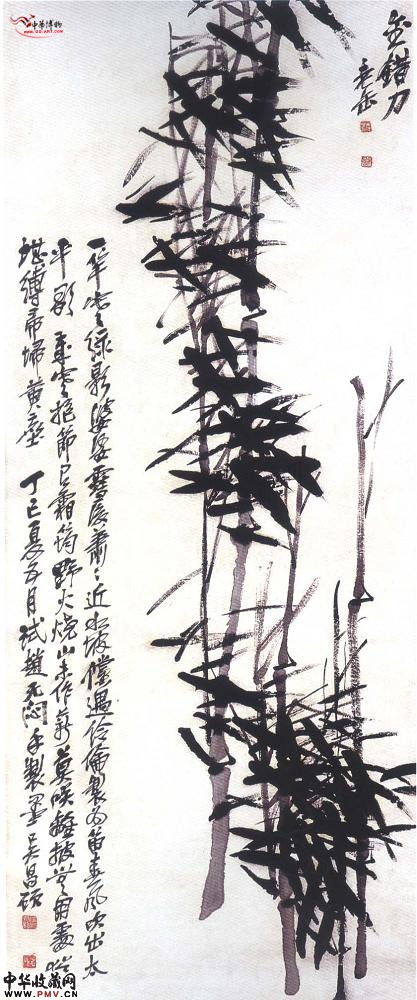 中華博物
WWW.GG-ART.COM
金錯刀
老缶
一竿寒綠影婆娑肅〻近水坡儻遇伶倫製為笛春風吹出太
平歌 抱節已霜筠野火燒山未作薪莫離披無用處
堪縛帚掃黃塵 丁巳夏五月試趙无悶手製墨吳昌碩
中华收藏网
WWW.PMV.CN